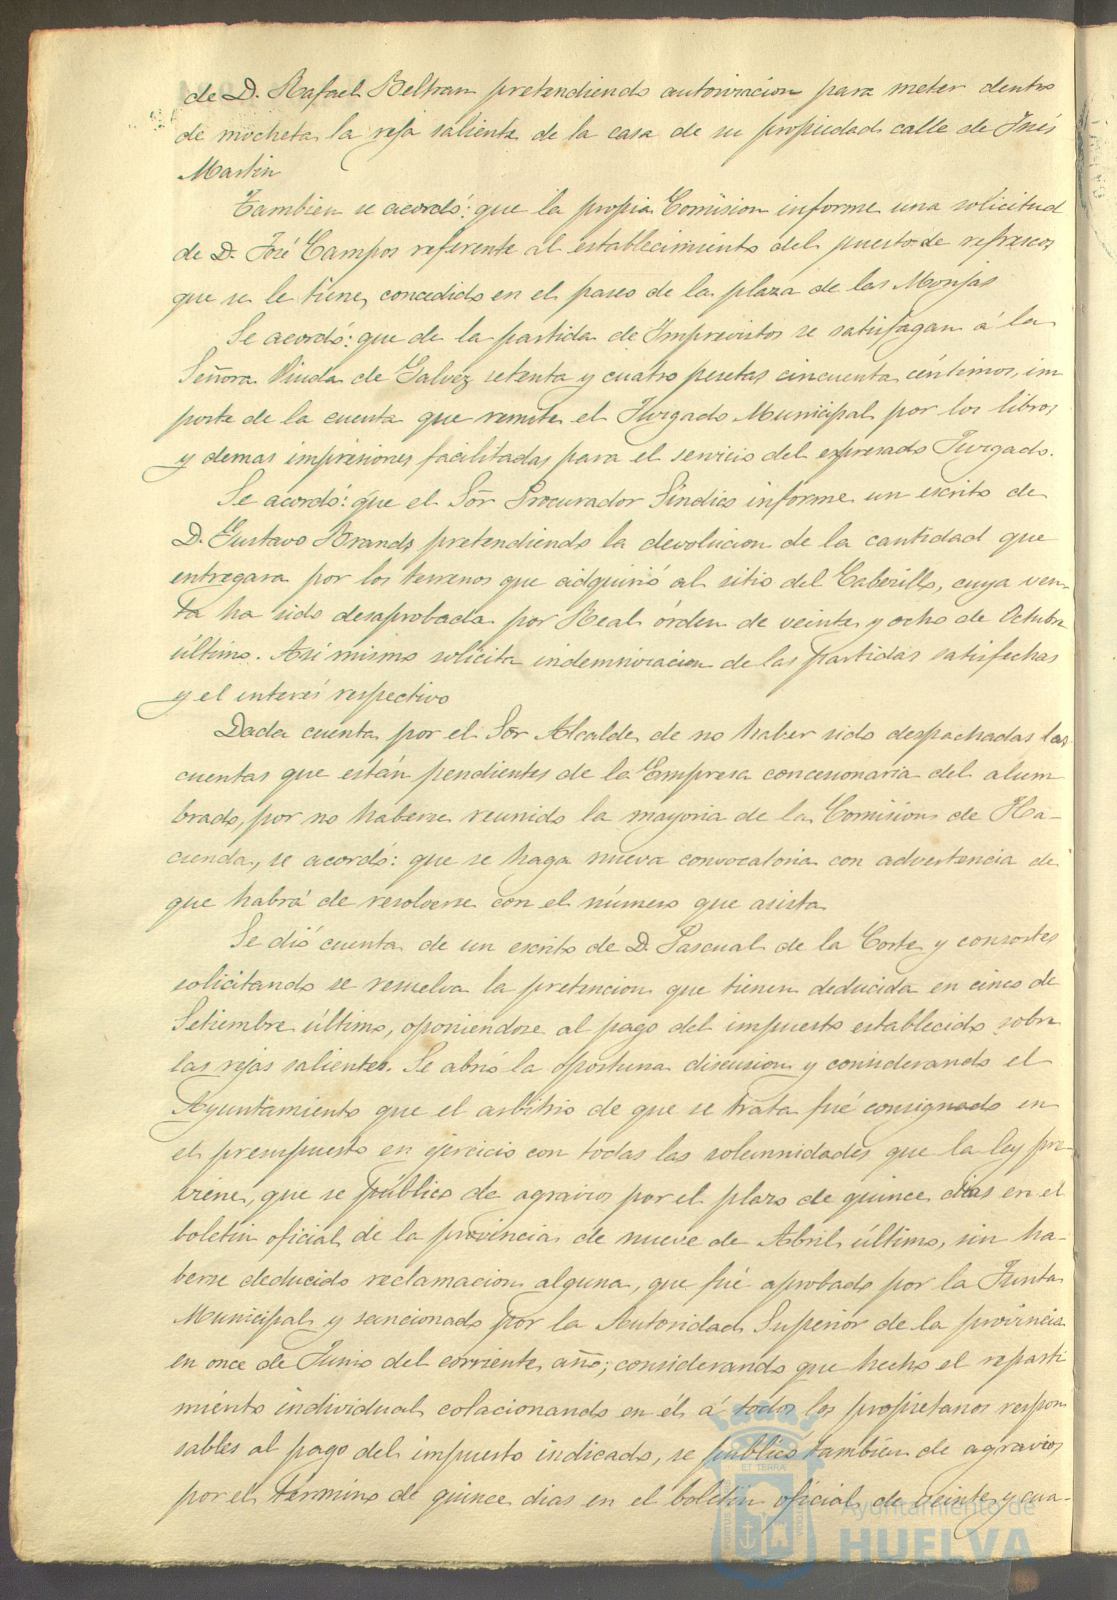 de D. Rafael Beltran pretendiendo autorizacion para meter dentro
de mocheta la reja saliente de la casa de su propiedad calle de Inés
Martin
Tambien se acordó: que la propia Comision informe una solicitud
de D. José Campos referente al establecimiento del puesto de refrescos
que se le tiene concedido en el paseo de la plaza de las Monjas
Se acordó: que de la partida de Imprevistos se satisfagan á la
Señora Viuda de Galvez setenta y cuatro pesetas cincuenta céntimos, im
porte de la cuenta que remite el Juzgado Municipal por los libros
y demas impresiones facilitadas para el servicio del expresado Juzgado.
Se acordó: que el Sór Procurador Síndico informe un escrito de
D. Gustavo Brandt pretendiendo la devolucion de la cantidad que
entregara por los terrenos que adquirió al sitio del Cabezillo, cuya ven-
ta ha sido desaprobada por Real órden de veinte y ocho de Octubre
último. Asi mismo solicita indemnizacion de las partidas satisfechas
y el interés respectivo
Dada cuenta por el Sor Alcalde de no haber sido despachadas las
cuentas que están pendientes de la Empresa concesionaria del alum
brado, por no haberse reunido la mayoria de la Comision de Ha-
cienda, se acordó: que se haga nueva convocatoria con advertencia de
que habrá de resolverse con el número que asista
Se dió cuenta de un escrito de D. Pascual de la Corte y consortes
solicitando se resuelva la pretencion que tienen deducida en cinco de
Setiembre último, oponiendose al pago del impuesto establecido sobre
las rejas salientes. Se abrió la oportuna discusion y considerando el
Ayuntamiento que el arbitrio de que se trata fué consignado en
el presupuesto en ejercicio con todas las solemnidades que la ley pre-
viene, que se publicó de agravios por el plazo de quince dias en el
boletin oficial de la provincia de nueve de Abril último, sin ha-
berse deducido reclamacion alguna, que fué aprobado por la Junta
Municipal y sancionado por la Autoridad Superior de la provincia
en once de Junio del corriente año; considerando que hecho el reparti
miento individual colacionando en él á todos los propietarios respon
sables al pago del impuesto indicado, se publicó tambien de agravios
por el término de quince dias en el boletin oficial de veinte y cua-
Ayuntamiento de
HUELVA